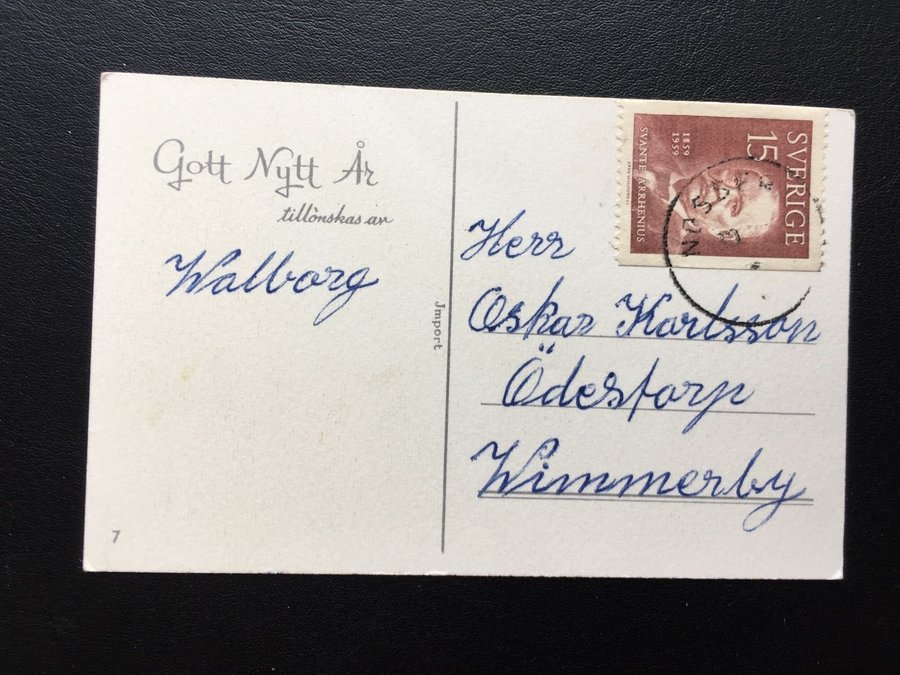 Gott Nytt År
tillönskas av
Walborg
7
Import
SVERIGE
15
1859
1959
SVANTE ARRHENIUS
Herr
Oskar Karlsson
Ödestorp
Wimmerby